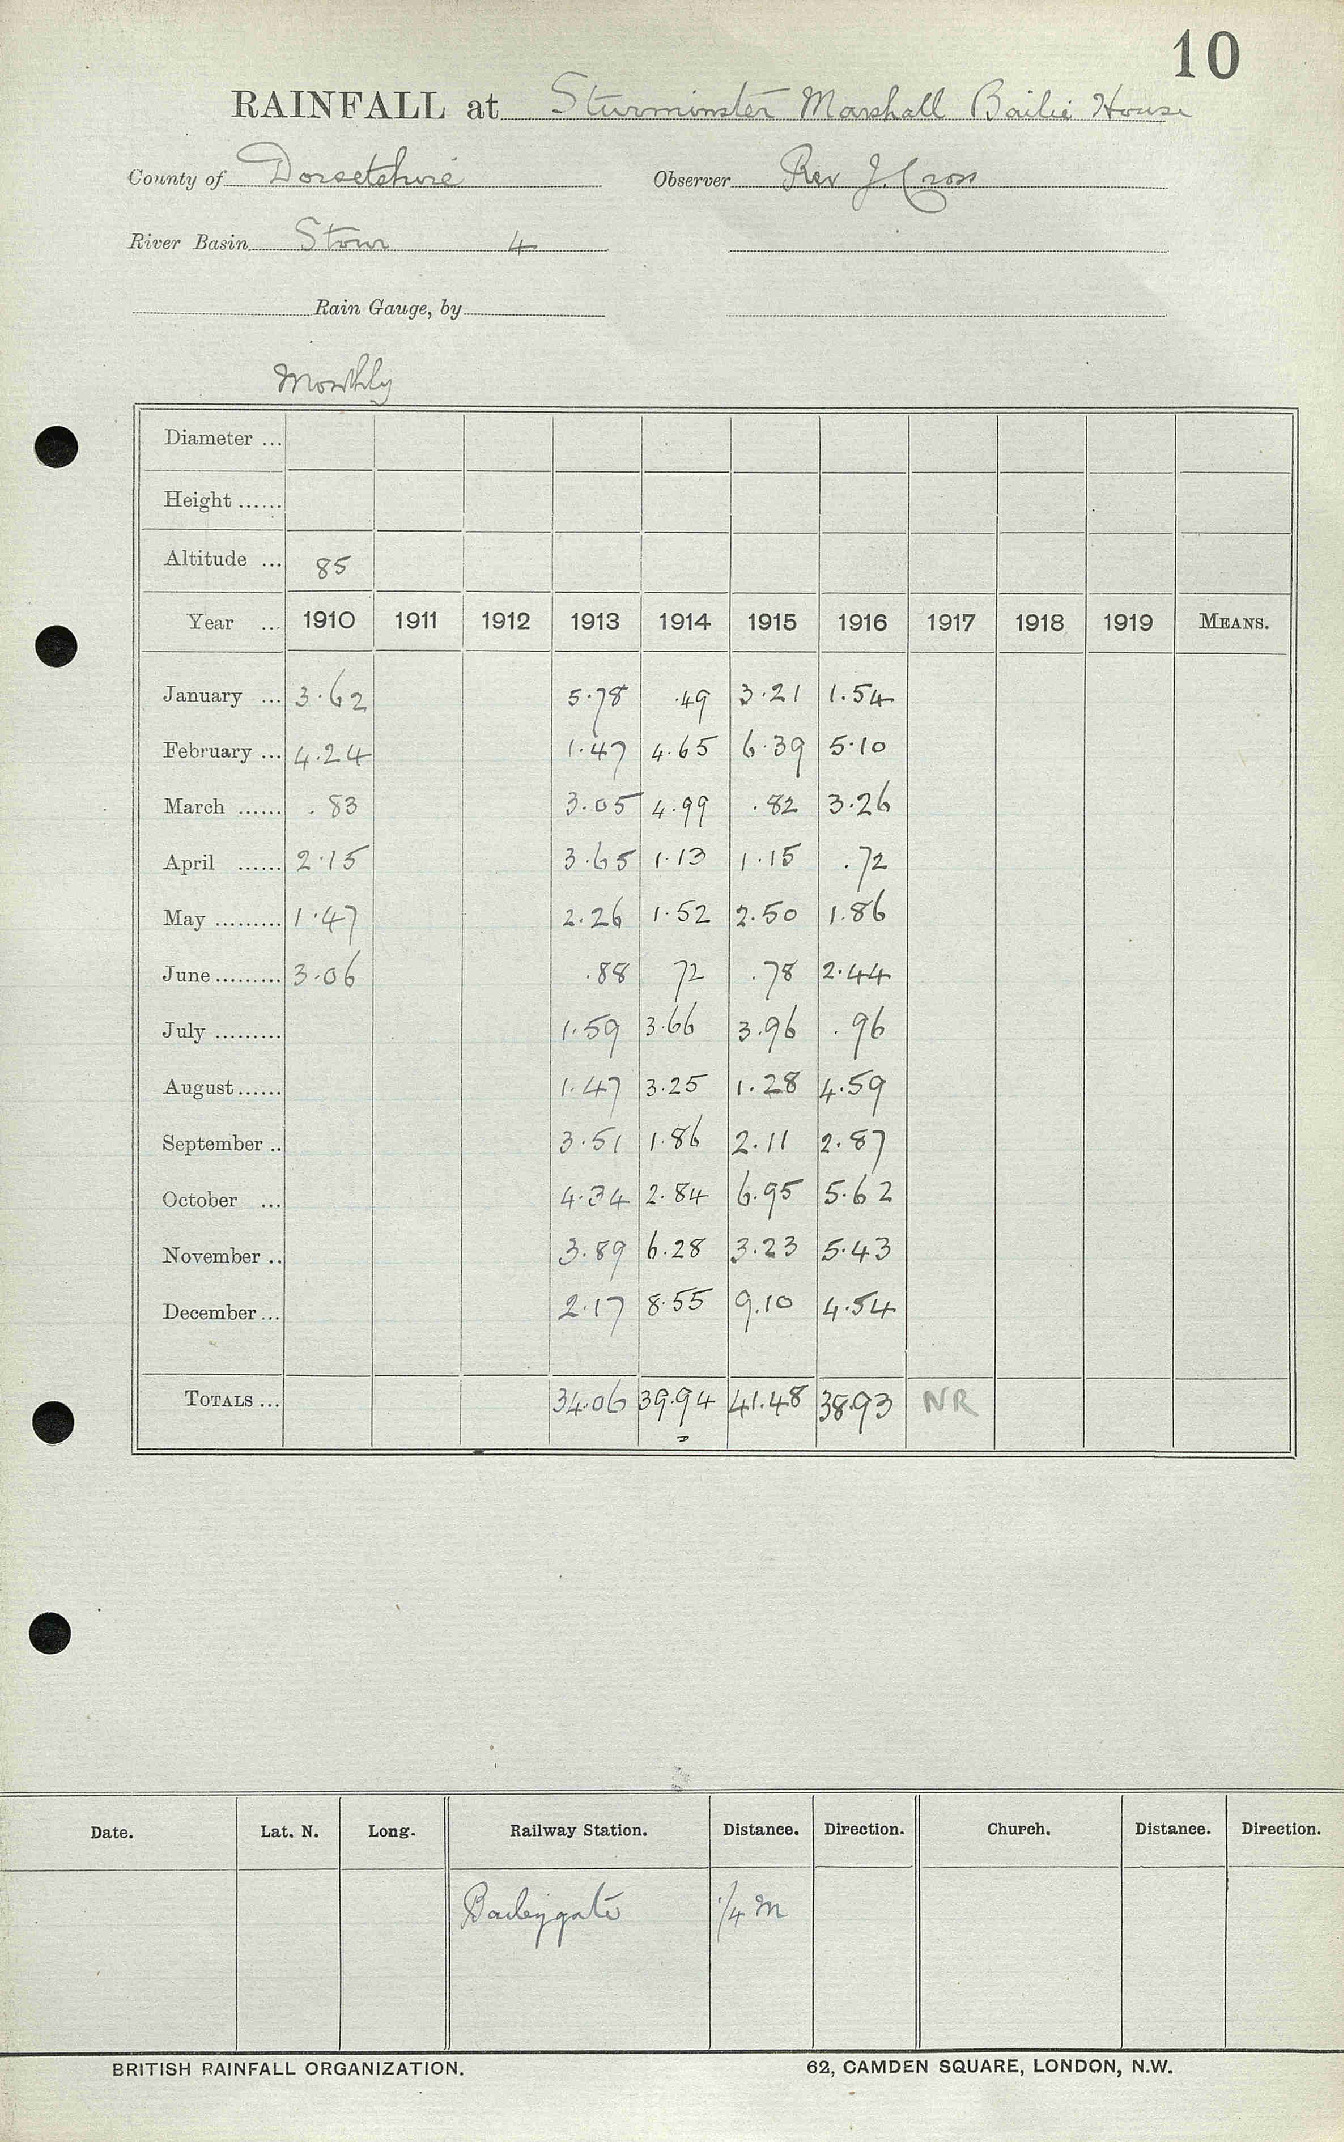 10
RAINFALL at Sturminster Marshall Bailie House
County of Dorsetshire Observer Rev J. Cross
River Basin Stour 4
Rain Gauge, by
Monthly
Diameter ...
Height ......
Altitude ... 85
Year ... 1910 1911 1912 1913 1914 1915 1916 1917 1918 1919 MEANS.
January ... 3.62 5.78 .49 3.21 1.54
February ... 4.24 1.47 4.65 6.39 5.10
March ...... .83 3.05 4.99 .82 3.26
April ...... 2.15 3.65 1.13 1.15 .72
May ......... 1.47 2.26 1.52 2.50 1.86
June ......... 3.06 .88 72 .78 2.44
July ......... 1.59 3.66 3.96 .96
August ...... 1.47 3.25 1.28 4.59
September .. 3.51 1.86 2.11 2.87
October ... 4.34 2.84 6.95 5.62
November .. 3.89 6.28 3.23 5.43
December ... 2.17 8.55 9.10 4.54
TOTALS ... 34.06 39.94 41.48 38.93 NR
Date. Lat. N. Long. Railway Station. Distance. Direction. Church. Distance. Direction.
Baileygate 1/4 m
BRITISH RAINFALL ORGANIZATION. 62, CAMDEN SQUARE, LONDON, N.W.